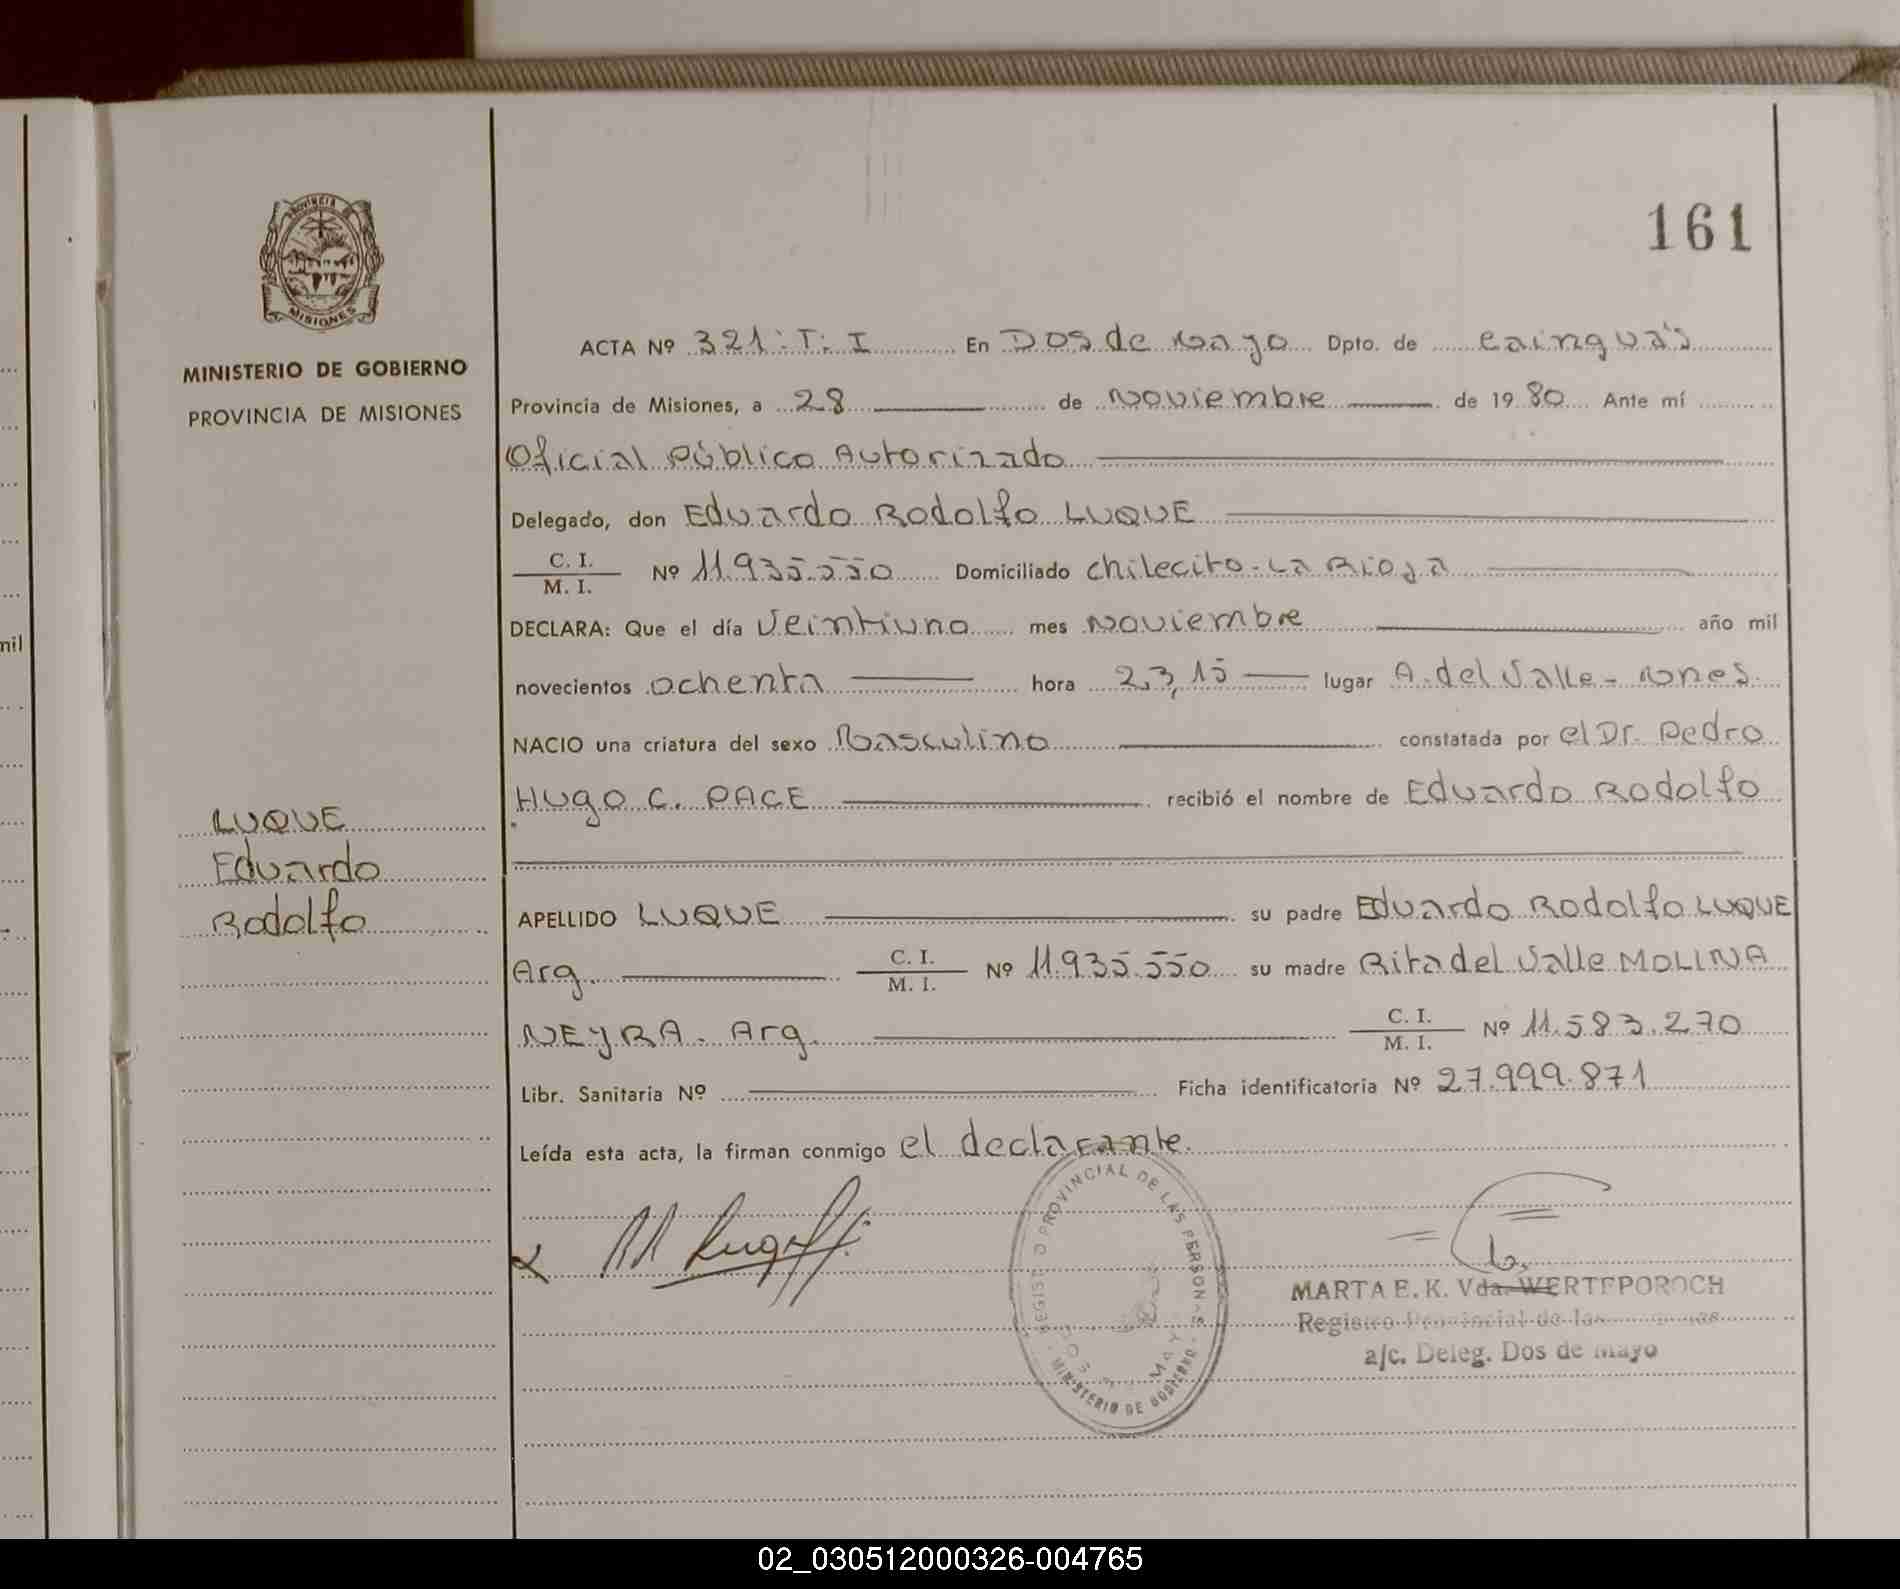 mil
PROVINCIA DE
MISIONES
MINISTERIO DE GOBIERNO
PROVINCIA DE MISIONES
LUQUE
Eduardo
Rodolfo
161
ACTA Nº 321. T. I En Dos de Mayo Dpto. de Cainguás
Provincia de Misiones, a 28 de Noviembre de 1980 Ante mí
Oficial Público Autorizado
Delegado, don Eduardo Rodolfo LUQUE
C. I.
M. I. Nº 11.935.550 Domiciliado Chilecito - La Rioja
DECLARA: Que el día Veintiuno mes Noviembre año mil
novecientos ochenta hora 23,15 lugar A. del Valle - Mnes.
NACIO una criatura del sexo Masculino constatada por el Dr. Pedro
Hugo C. PACE recibió el nombre de Eduardo Rodolfo
APELLIDO LUQUE su padre Eduardo Rodolfo LUQUE
Arg. C. I.
M. I. Nº 11.935.550 su madre Rita del Valle MOLINA
NEYRA. Arg. C. I.
M. I. Nº 11.583.270
Libr. Sanitaria Nº Ficha identificatoria Nº 27.999.871
Leída esta acta, la firman conmigo el declarante.
REGISTRO PROVINCIAL DE LAS PERSONAS
MINISTERIO DE GOBIERNO
MARTA E. K. Vda. WERTEPOROCH
Registro Provincial de las
a/c. Deleg. Dos de Mayo
02_030512000326-004765